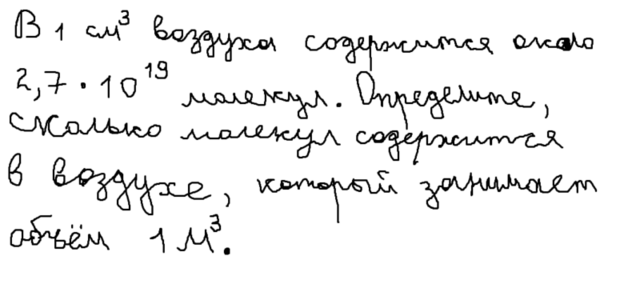 В 1 см³ воздуха содержится около
2,7 · 10¹⁹ молекул. Определите,
сколько молекул содержится
в воздухе, который занимает
объём 1 м³.